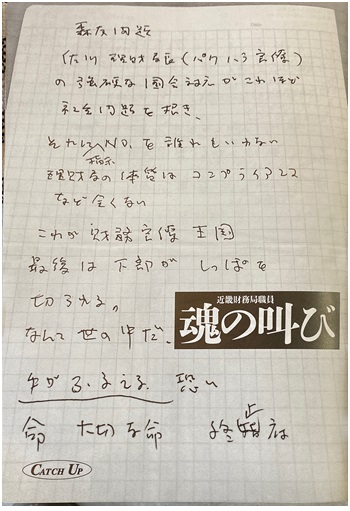 森友問題
佐川理財局長(パワハラ官僚)
の強硬な国会対応がこれほど
社会問題を招き、
それにNO、を誰れもいわない
指示
理財局の体質は コンプライアンス
など全くない
これが財務官僚王国
最後は下部がしっぽを
切られる。
なんて世の中だ、
手がふるえる 恐い
命 大切な命 終止府
近畿財務局職員
魂の叫び
CATCH UP